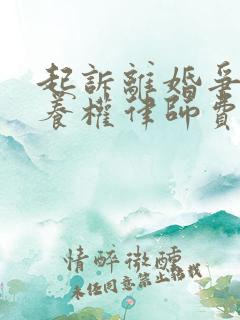 起訴離婚爭
養權律師費
情醉微醺
未经同意禁止转载